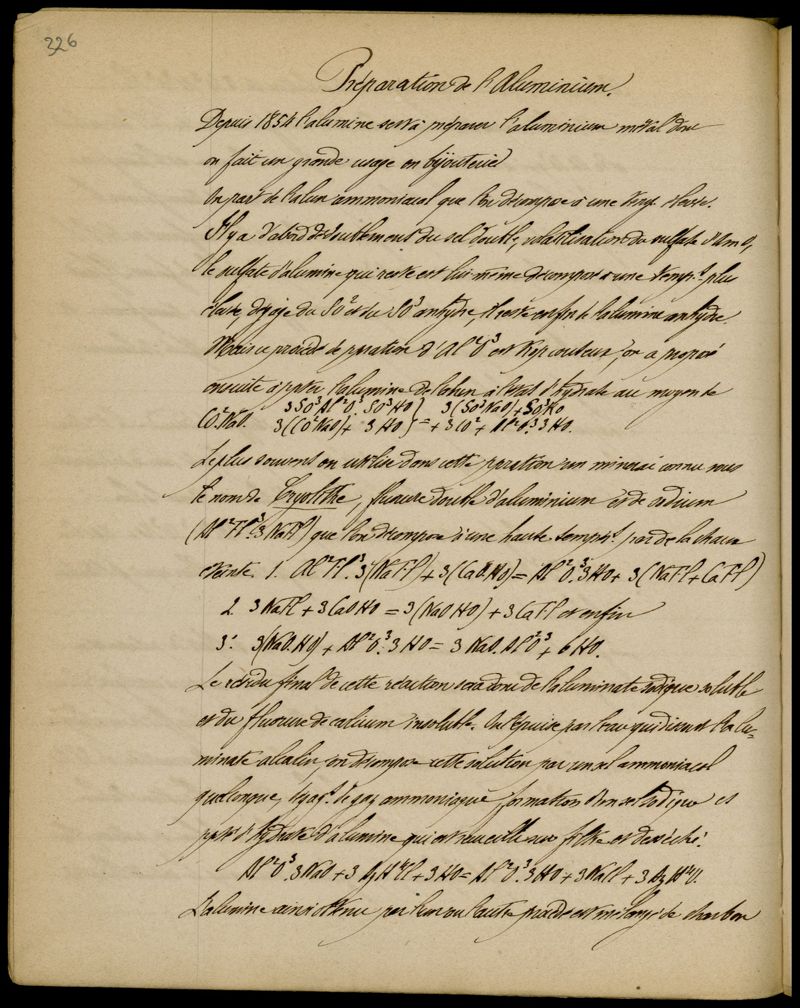 226
Préparation de l'Aluminium.
Depuis 1854 l'alumine sert à préparer l'aluminium métal dont
on fait un grande usage en bijouterie
On part de l'alun ammoniacal que l'on décompose à une temp. élevée.
Il y a d'abord dédoublement du sel double, volatilisation du sulfate d'Am O,
le sulfate d'alumine qui reste est lui même décomposé à une temp.re plus
élevée, dégage du SO² et du SO³ anhydre, il reste enfin de l'alumine anhydre.
Mais ce procédé de pparation d'Al²O³ est trop couteux, on a proposé
ensuite à ppter l'alumine de l'alun à l'état d'hydrate au moyen de
3SO³Al²O³. SO³HO} 3(SO³NaO) + SO³KO
CO².NaO. 3(CO²NaO) + 3HO} = + 3CO² + Al²O³.3HO.
Le plus souvent on utilise dans cette pparation un minerai connu sous
le nom de Cryolithe, fluorure double d'aluminium et de sodium
(Al²Fl³.3NaFl) que l'on décompose à une haute tempre. par de la chaux
éteinte. 1. Al²Fl³.3(NaFl) + 3(CaO.HO) = Al²O³.3HO + 3(NaFl + CaFl)
2. 3NaFl + 3CaOHO = 3(NaOHO) + 3CaFl et enfin
3º. 3(NaO.HO) + Al²O³.3HO = 3NaO.Al²O³ + 6HO.
Le résidu final de cette réaction sera donc de l'aluminate sodique soluble
et du fluorure de calcium insoluble. On l'épuise par l'eau qui dissout l'alu-
minate alcalin, on décompose cette solution par un sel ammoniacal
quelconque, dégagt. de gaz ammoniaque formation d'un sel sodique et
ppté d'hydrate d'alumine qui est recueilli sur filtre et desséché.
Al²O³.3NaO + 3AzH⁴Cl + 3HO = Al²O³.3HO + 3NaCl + 3AzH⁴O.
L'alumine ainsi obtenue par l'un ou l'autre procédé est mélangé de charbon